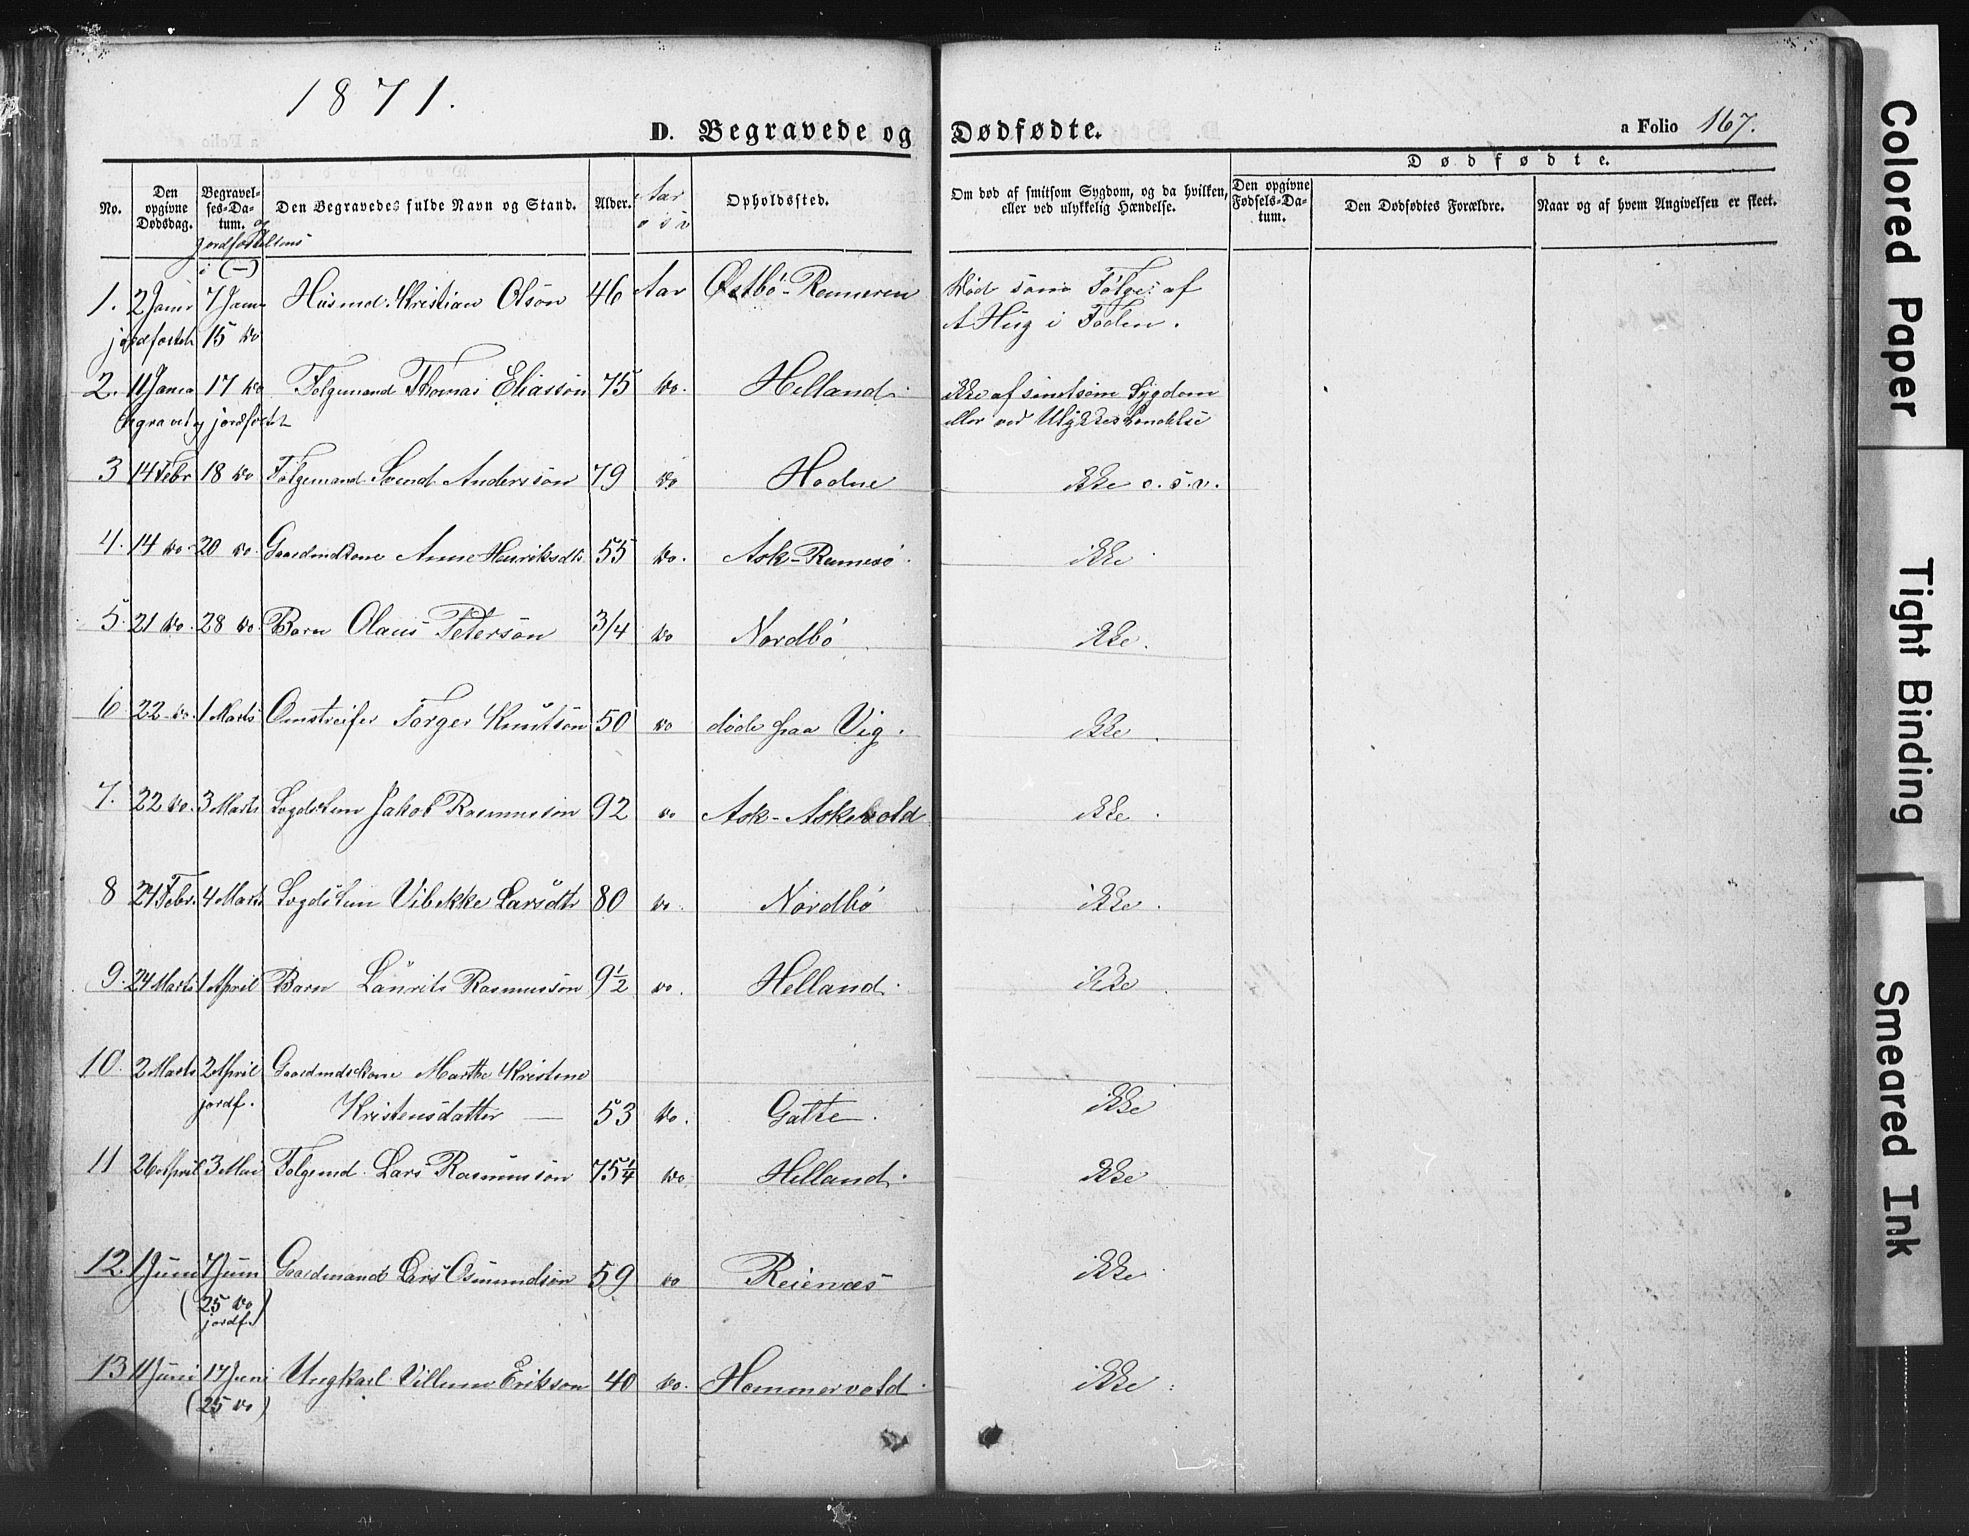 1871.
D. Begravede og Dødfødte.
a Folio 167.
No.
Den opgivne Dødsdag.
Begravelses-Datum. og Jordfæstelsens i (—)
Den Begravedes fulde Navn og Stand.
Alder.
Aar o s v
Opholdssted.
Om død af smitsom Sygdom, og da hvilken, eller ved ulykkelig Hændelse.
Dødfødte.
Den opgivne Fødsels-Datum.
Den Dødfødtes Forældre.
Naar og af hvem Angivelsen er skeet.
1. 2 Januar 7 Januar Husmd. Kristian Olsøn 46 Aar Østbø- Død som Følge af
jordfæstet 15 do A Hug i Foden.
2. 11 Janua 17 do Folgemand Thomas Eliassøn 75 do. Helland. ikke af smitsom Sygdom
begravet og jordfæstet eller ved Ulykkeshændelse
3 14 Febr 18 do Folgemand Svend Anderssøn 79 do Hodne ikke o. s. v.
4. 14 do. 20 do. Gaardmdkone Anne Henriksdtr 55 do. Ask-Rennesø. ikke
5. 21 do. 28 do. Barn Olaus Petersøn 3/4 do Nordbø ikke.
6 22 do. 1 Marts Omstreifer Torger Knutsøn 50 do døde paa Vig. ikke.
7. 22 do. 3 Marts Lægdslem Jakob Rasmussøn 92 do Ask-Askevold ikke.
8 24 Febr. 4 Marts Lægdslem Vibekke Larsdtr 80 do. Nordbø ikke.
9. 24 Marts 1 April Barn Laurits Rasmussøn 9 1/2 do. Helland. ikke.
10. 2 Marts 2 April Gaardmdskone Marthe Kristine
jordf. Kristensdatter — 53 do. Galte. ikke
11 26 April 3 Mai Folgemd. Lars Rasmussøn 75 1/4 do. Helland. ikke
12. 1 Juni 7 Juni Gaardmand Lars Osmundsøn 59 do Reienæs ikke
(25 do)
jordf.
13 11 Juni 17 Juni Ungkarl Villum Eriksøn 40 do. Hammervold. ikke
(25 do)
Colored Paper
Tight Binding
Smeared Ink